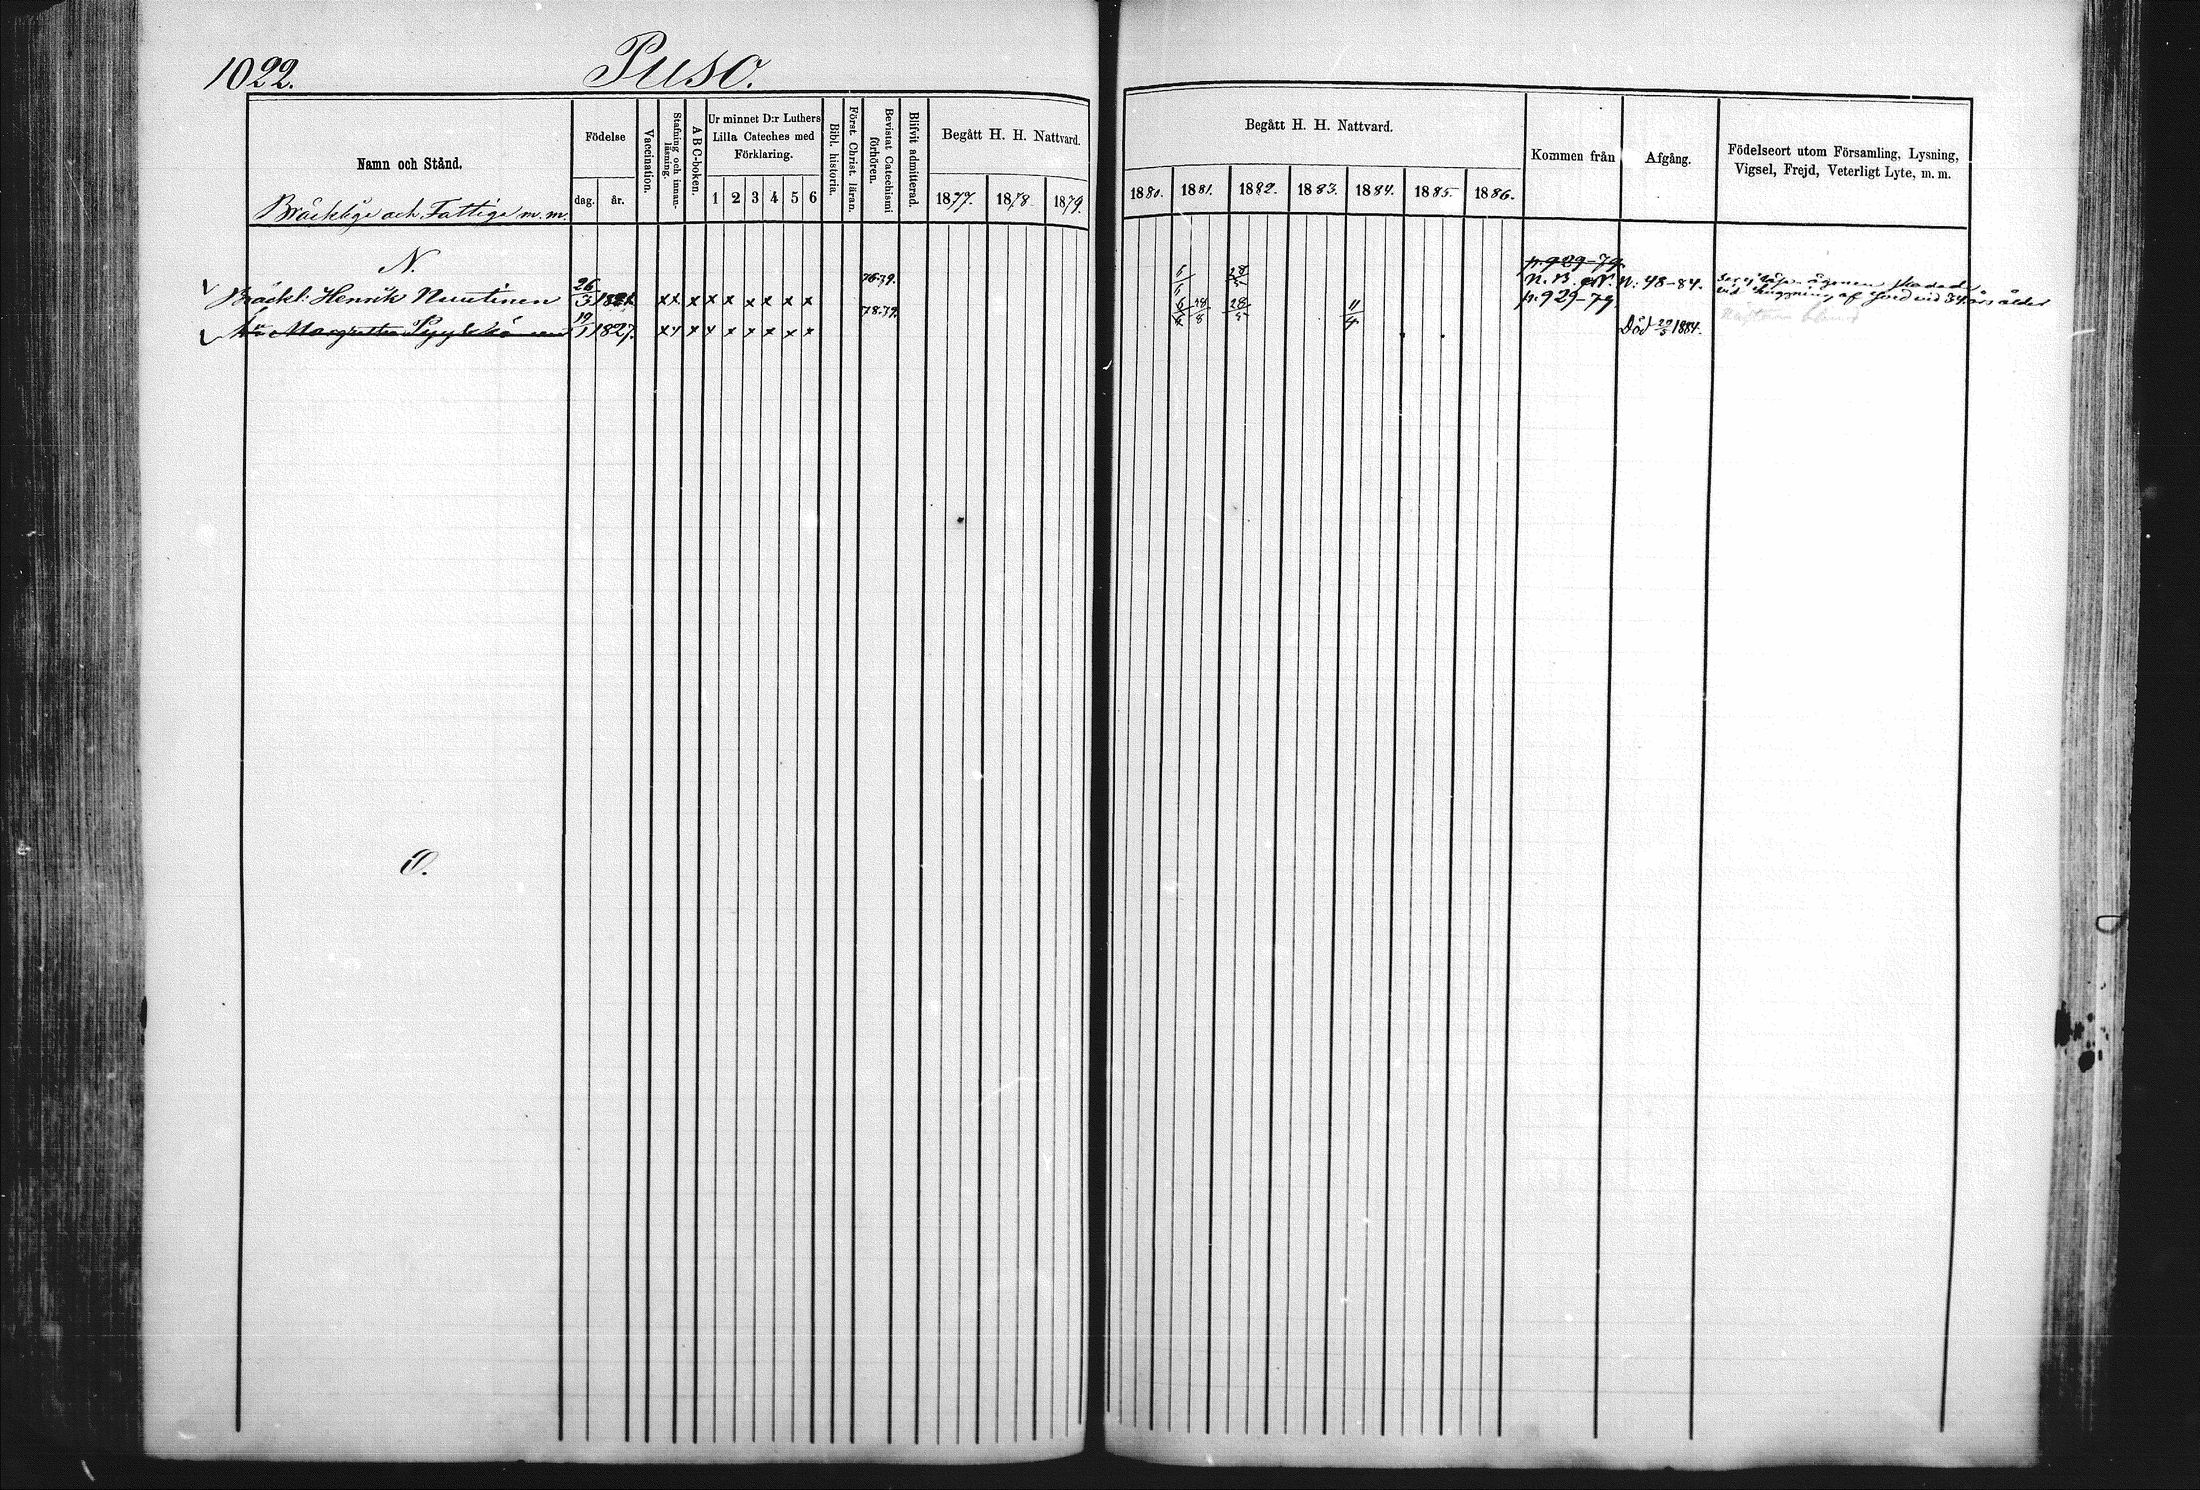 1022.
Puso.
Namn och Stånd.
Bräcklige och Fattige m.m.
Födelse
dag. år.
Vaccination.
Stafning och innan-läsning.
A B C-boken.
Ur minnet D:r Luthers
Lilla Cateches med
Förklaring.
1 2 3 4 5 6
Bibl. historia.
Först. Christ. läran.
Bevistat Catechismi förhören.
Blifvit admitterad.
Begått H. H. Nattvard.
1877. 1878. 1879.
Begått H. H. Nattvard.
1880. 1881. 1882. 1883. 1884. 1885. 1886.
Kommen från
Afgång.
Födelseort utom Församling, Lysning,
Vigsel, Frejd, Veterligt Lyte, m. m.
N.
p. 929-79.
Bräckl: Henrik Nuutinen 26/3 1821. x x x x x x x x x 78.79. 28/5 N: 48-84.
ögonen skadade
vid huggning af vid 34 års ålder
Margretha Pyykkö 19/1 1827. x x x x x x x x x 78.79. 6/6 28/8 28/5 11/4 p. 929-79 Död 29/5 1884.
O.